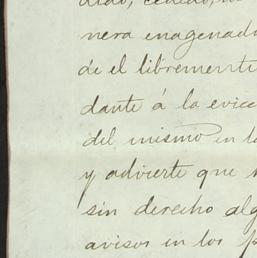 dido, cedido, ni
nera enagenado
de el libremente
dante á la evicc
del mismo en lo
y advierte que
sin derecho alg
avisos en los p